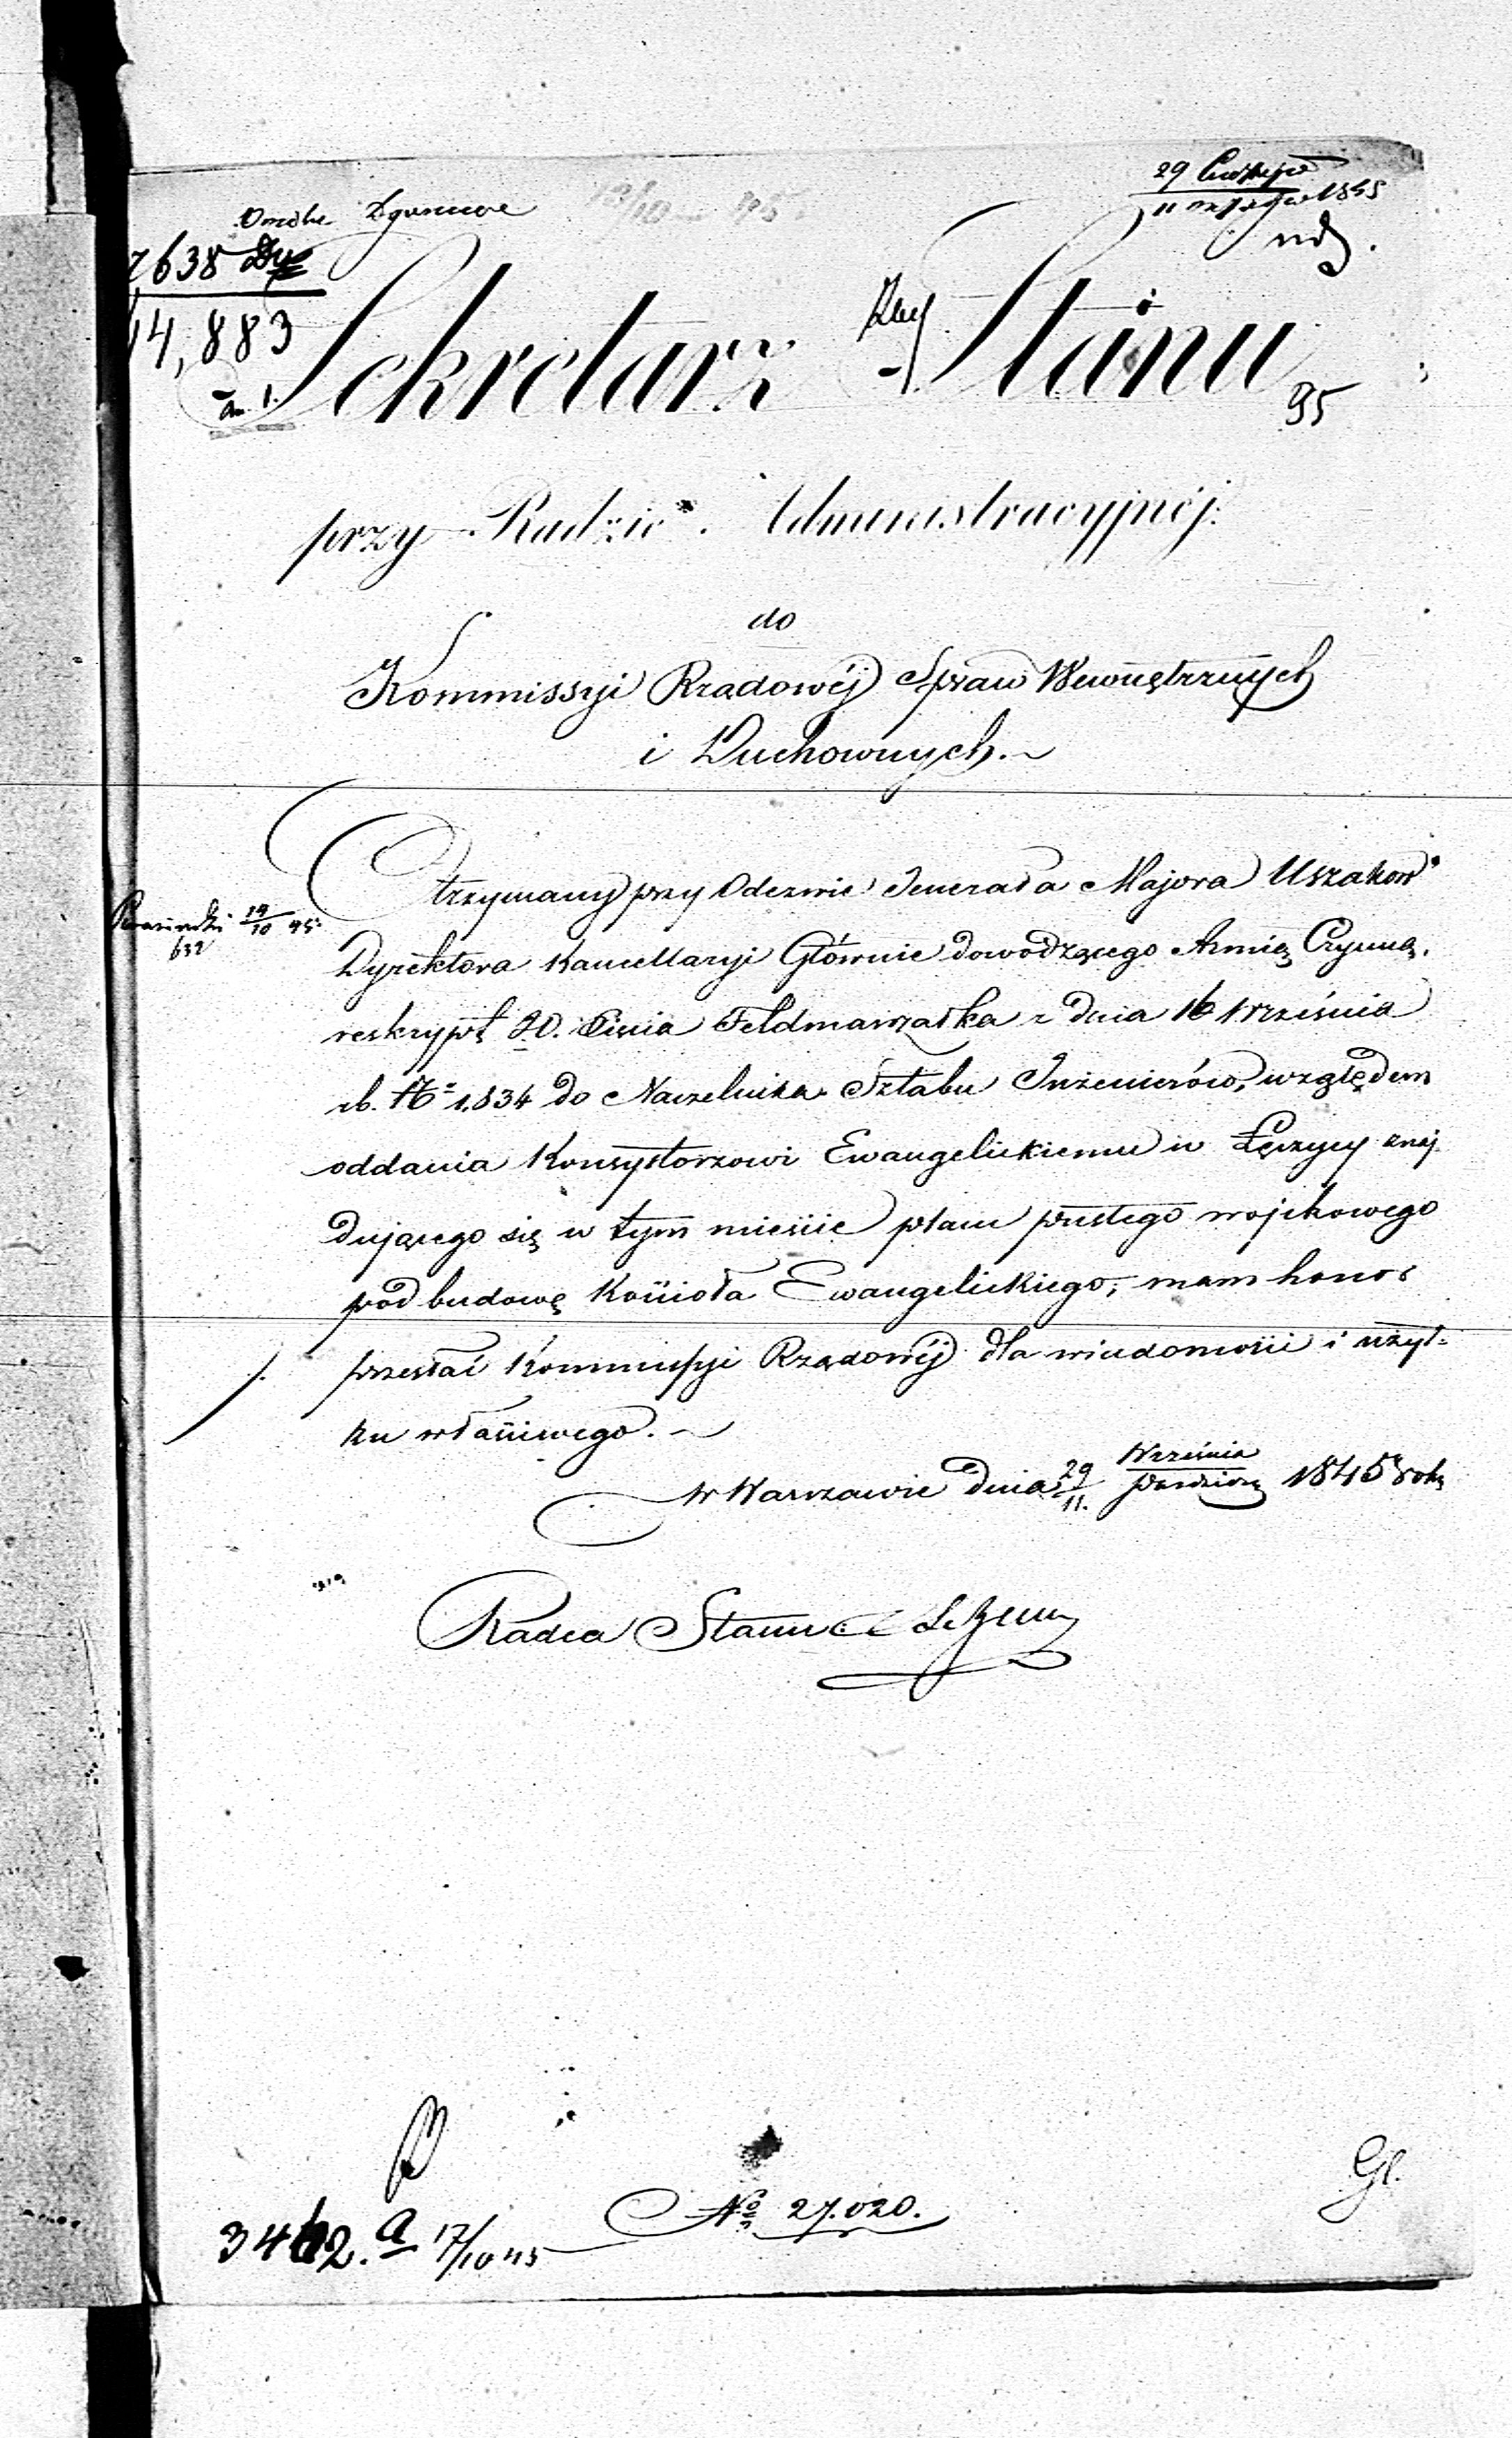 29
11 1845
2638
14,883
Sekretarz Stanu
95
przy Radzie Administracyjnéj
do
Kommissyi Rządowéj Spraw Wewnętrznych
i Duchownych.
Otrzymany przy Odezwie Jenerała Majora Uszakow
Dyrektora Kancellaryi Głównie dowodzącego Armią Czynną,
19/10 45
632
reskrypt J.O. Xięcia Feldmarszałka z dnia 16 Września
rb. No 1,834 do Naczelnika Sztabu Inżenierów, względem
oddania Konsystorzowi Ewangelickiemu w Łęczycy znaj
dującego się w tym mieście placu pustego wojskowego
pod budowę Kościoła Ewangelickiego, mam honor
przesłać Kommissyi Rządowéj dla wiadomości i użyt=
ku właściwego.
w Warszawie dnia 29/11. Września/Paździer. 1845 roku
Radca Stanu
Gl.
No 27.020.
3462. a 17/10 45